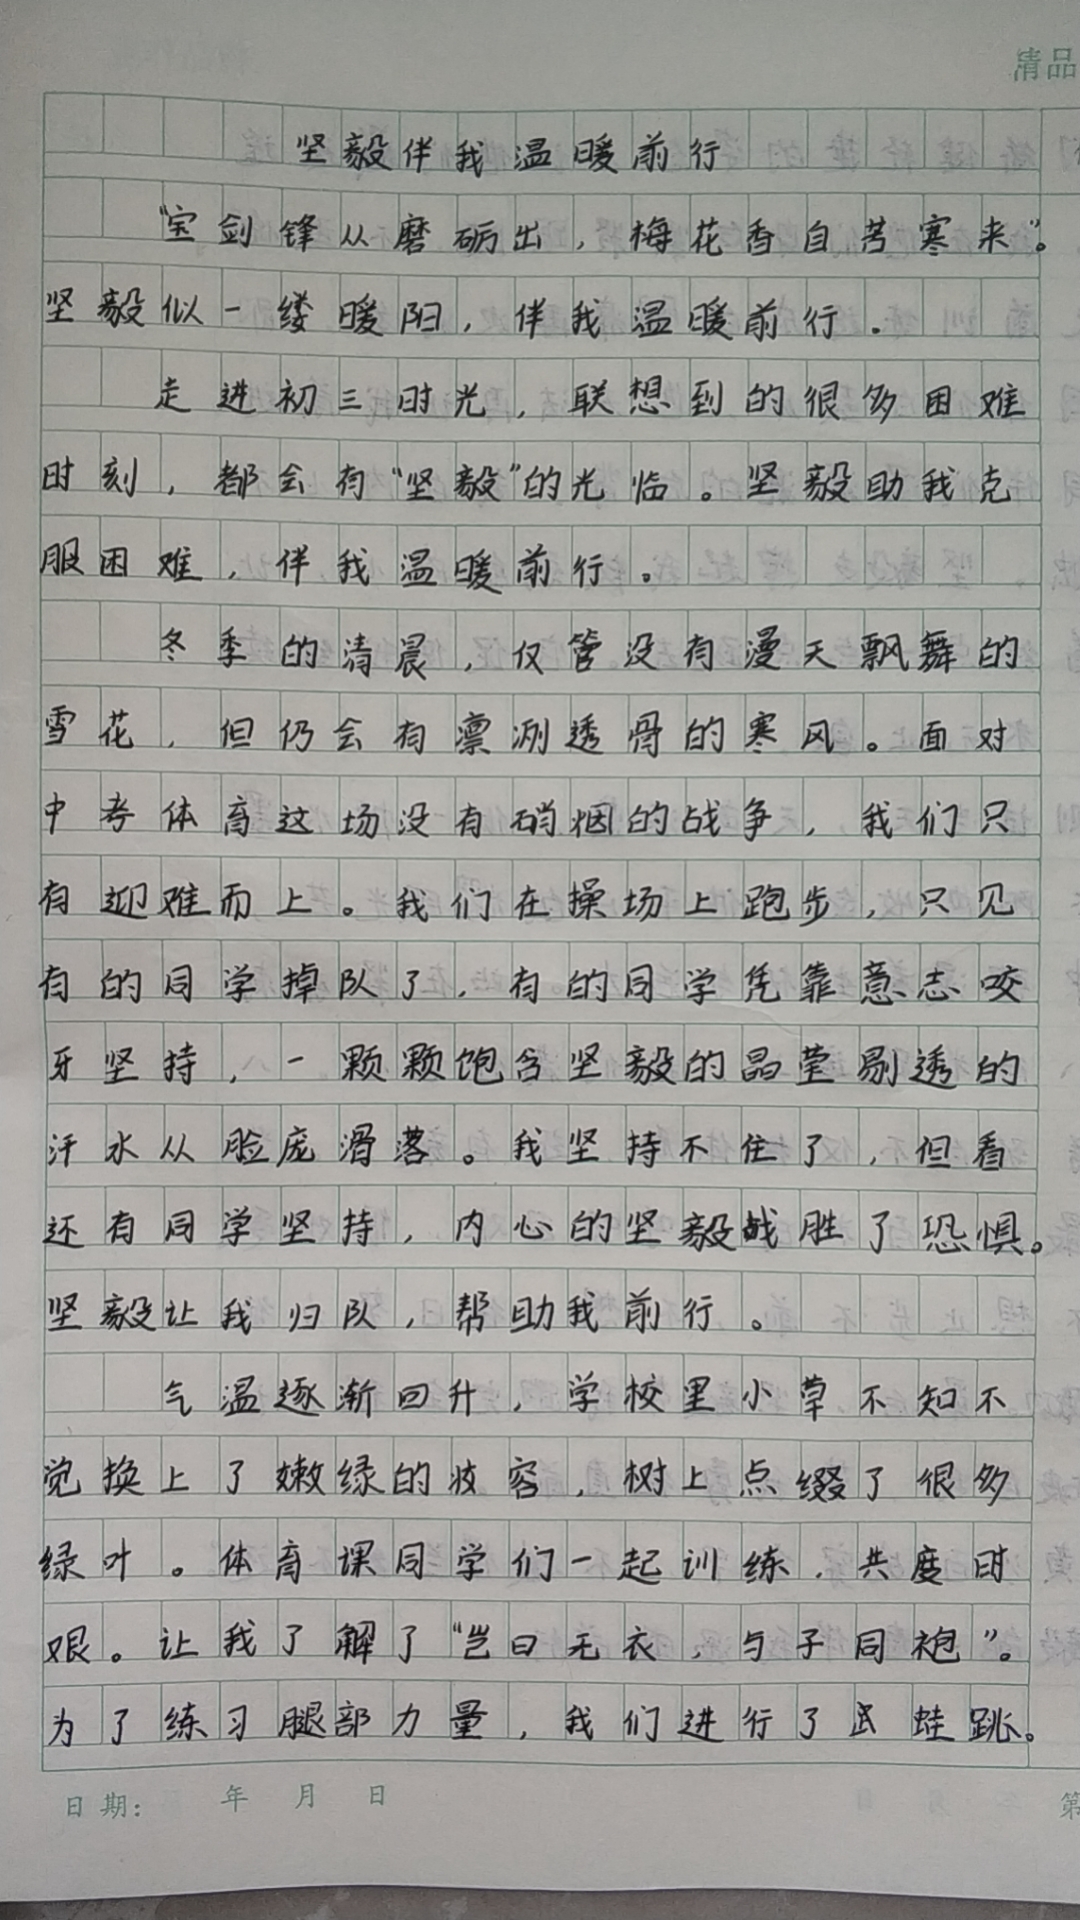 清品
坚毅伴我温暖前行
“宝剑锋从磨砺出，梅花香自苦寒来”。
坚毅似一缕暖阳，伴我温暖前行．
走进初三时光，联想到的很多困难
时刻，都会有“坚毅”的光临。坚毅助我克
服困难，伴我温暖前行。
冬季的清晨，仅管没有漫天飘舞的
雪花，但仍会有凛冽透骨的寒风。面对
中考体育这场没有硝烟的战争，我们只
有迎难而上。我们在操场上跑步，只见
有的同学掉队了，有的同学凭靠意志咬
牙坚持，一颗颗饱含坚毅的晶莹剔透的
汗水从脸庞滑落。我坚持不住了，但看
还有同学坚持，内心的坚毅战胜了恐惧。
坚毅让我归队，帮助我前行。
气温逐渐回升，学校里小草不知不
觉换上了嫩绿的妆容，树上点缀了很多
绿叶。体育课同学们一起训练，共度时
艰。让我了解了“岂曰无衣，与子同袍”。
为了练习腿部力量，我们进行了蛙跳。
日期： 年 月 日
第